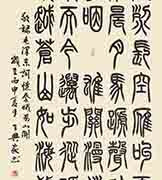 烈長空雁叫
月馬蹄聲碎
咽雄關漫道
而今邁步從
越蒼山如海
敬錄毛澤東詞憶秦娥婁山關
歲在丙申夏月